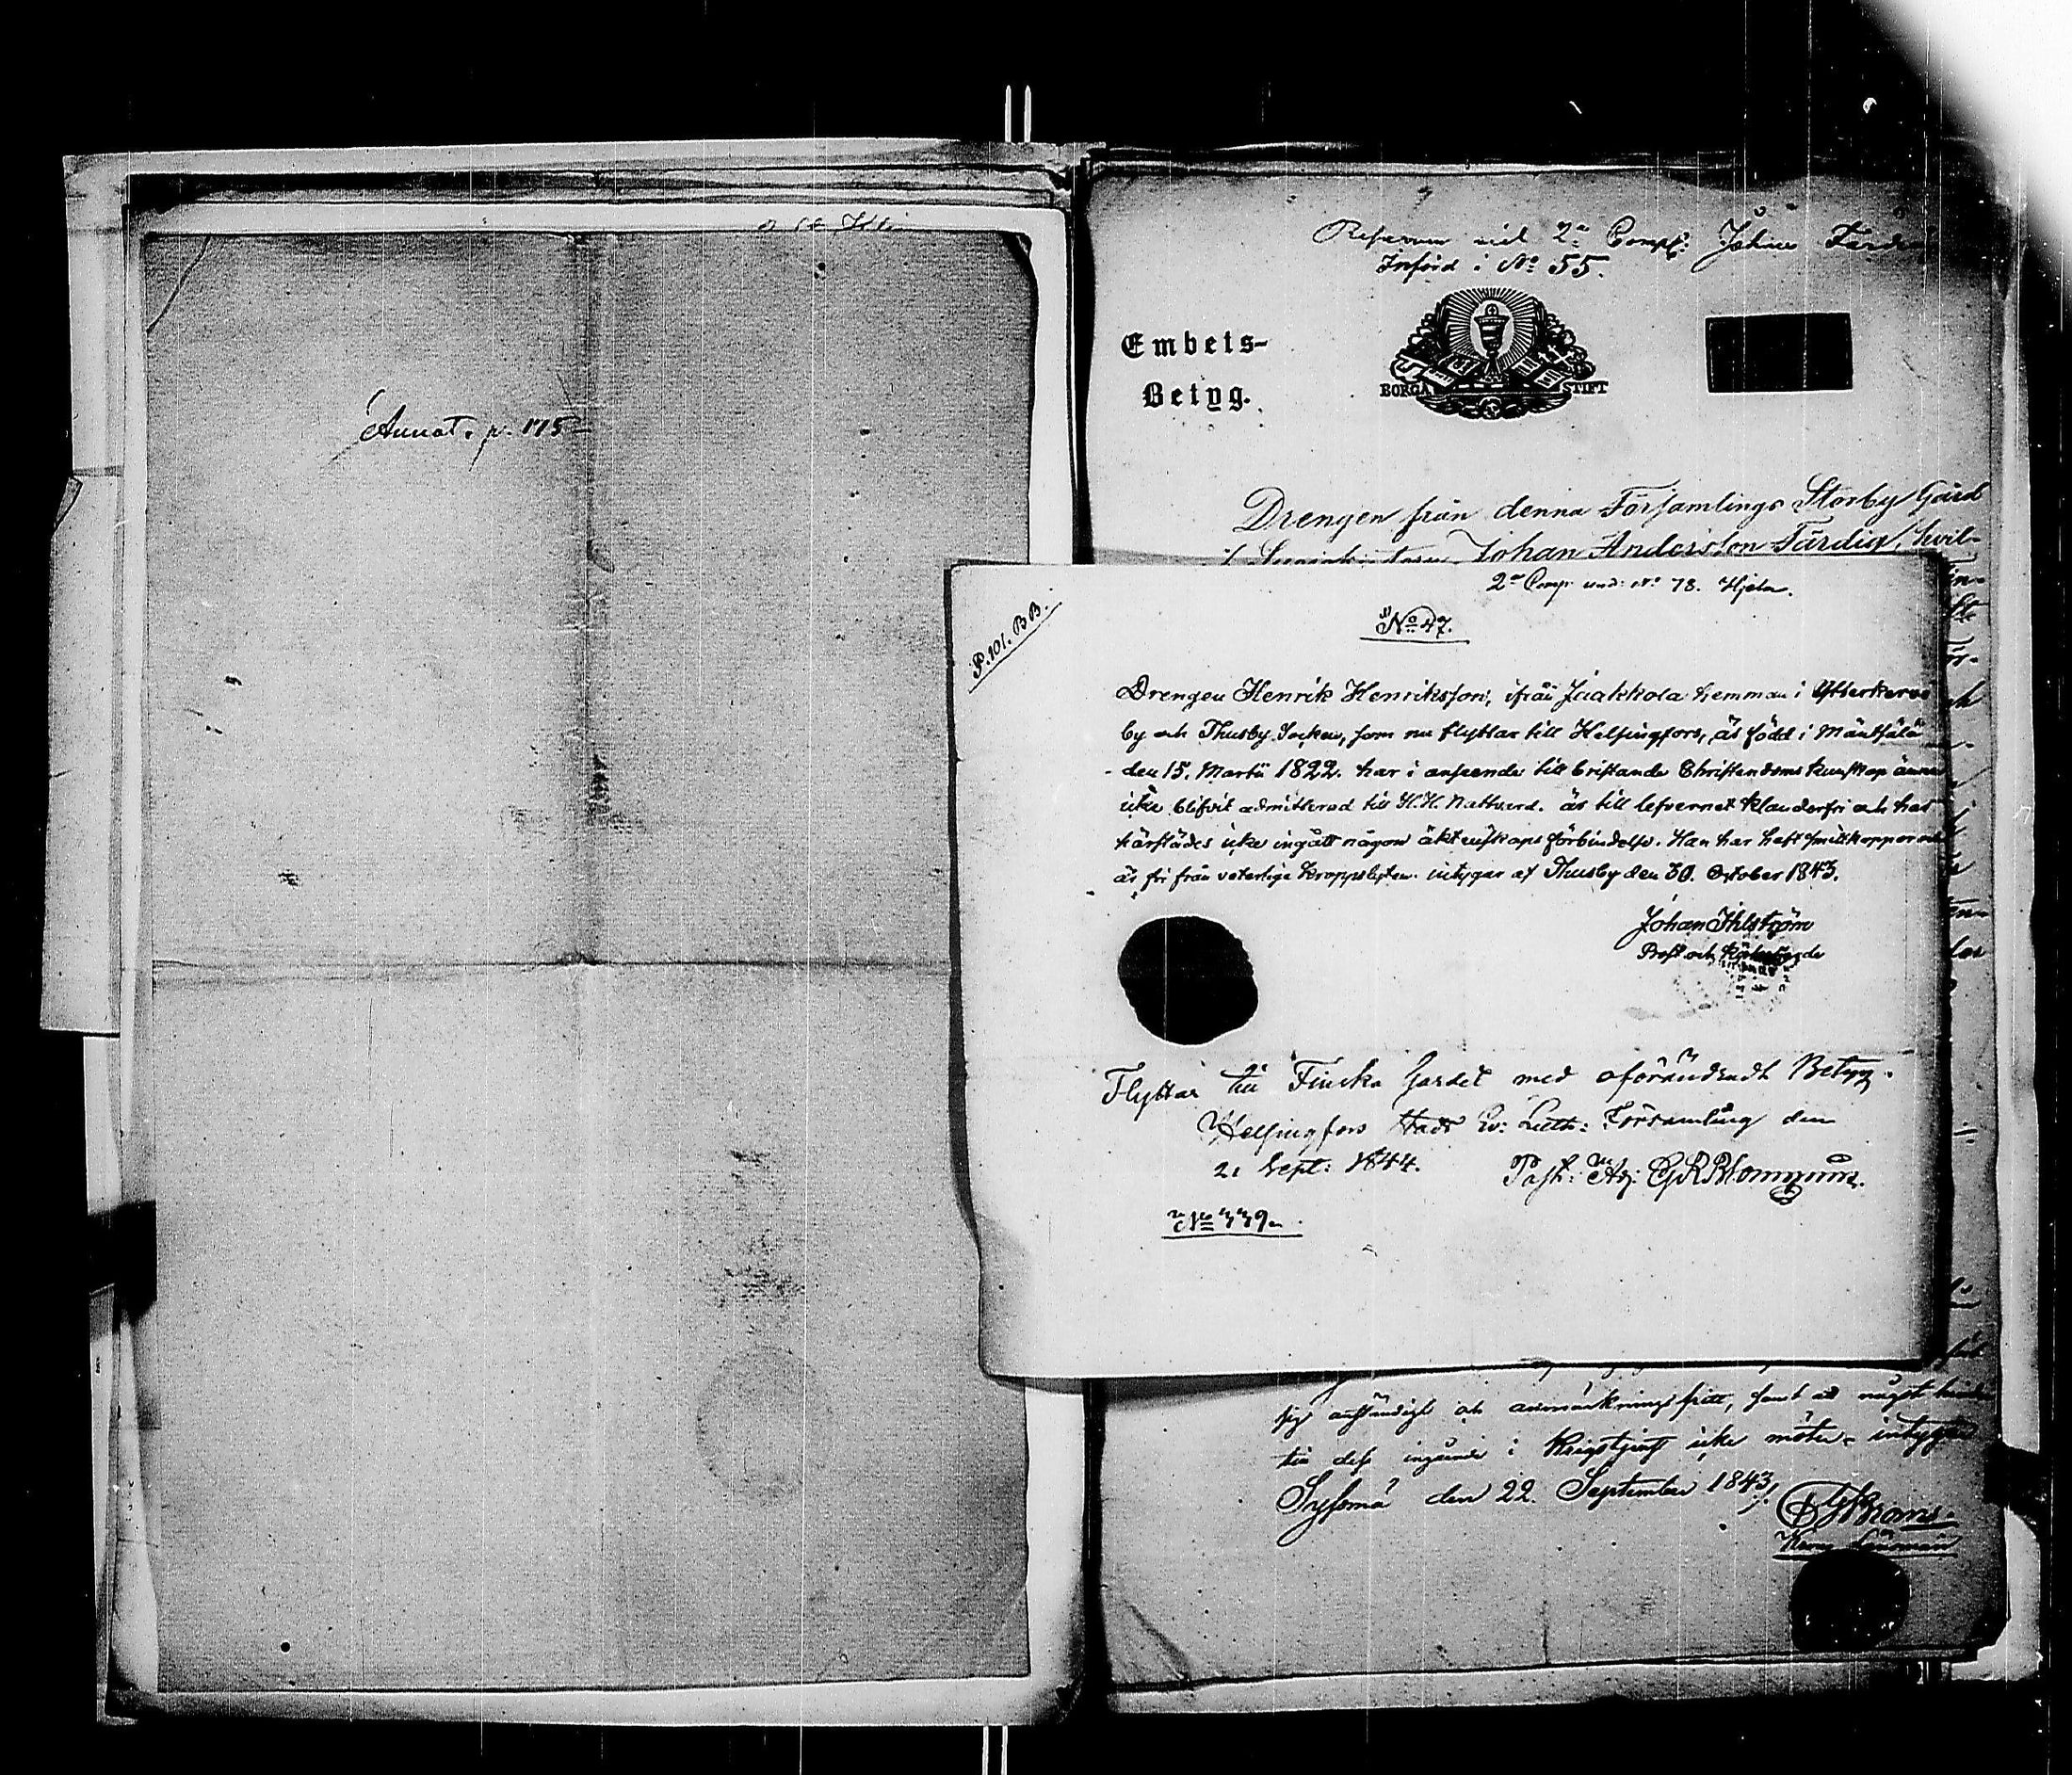 Annot. p. 175
2a Comp. Johan
Införd i No 55.
Embets-
Betyg.
BORGÅ STIFT
Drengen från denna Församlings Storby Gård
Johan Andersson Färdig, hvil-
2a Comp. und: No 78. Hjelm.
No 47.
P. 101. B B.
Drengen Henrik Henriksson, ifrån Jaakkola hemman i
by och Thusby Socken, som nu flyttar till Helsingfors, är född i Mäntsälä
den 15. Martii 1822. har i anseende till bristande Christendoms kunskap ännu
icke blifvit admitterad till H. H. Nattvard. är till lefvernet klanderfri och har
härstädes icke ingått någon äktenskaps förbindelse. Han har haft smittkoppor och
är fri från veterliga kroppslyten. intygar af Thusby den 30. October 1843.
Johan Ihlström
Prost och Kyrkoherde
Flyttar till Finska Gardet med oförändradt Betyg.
Helsingfors Stads Ev: Luth: Församling den
21 Sept: 1844. Past: Adj:
No 339.
sig anständigt och anmärkningsfritt, samt att något hinder
till dess ingående i Krigstjenst icke möter, intygar
Sysmä den 22. September 1843.